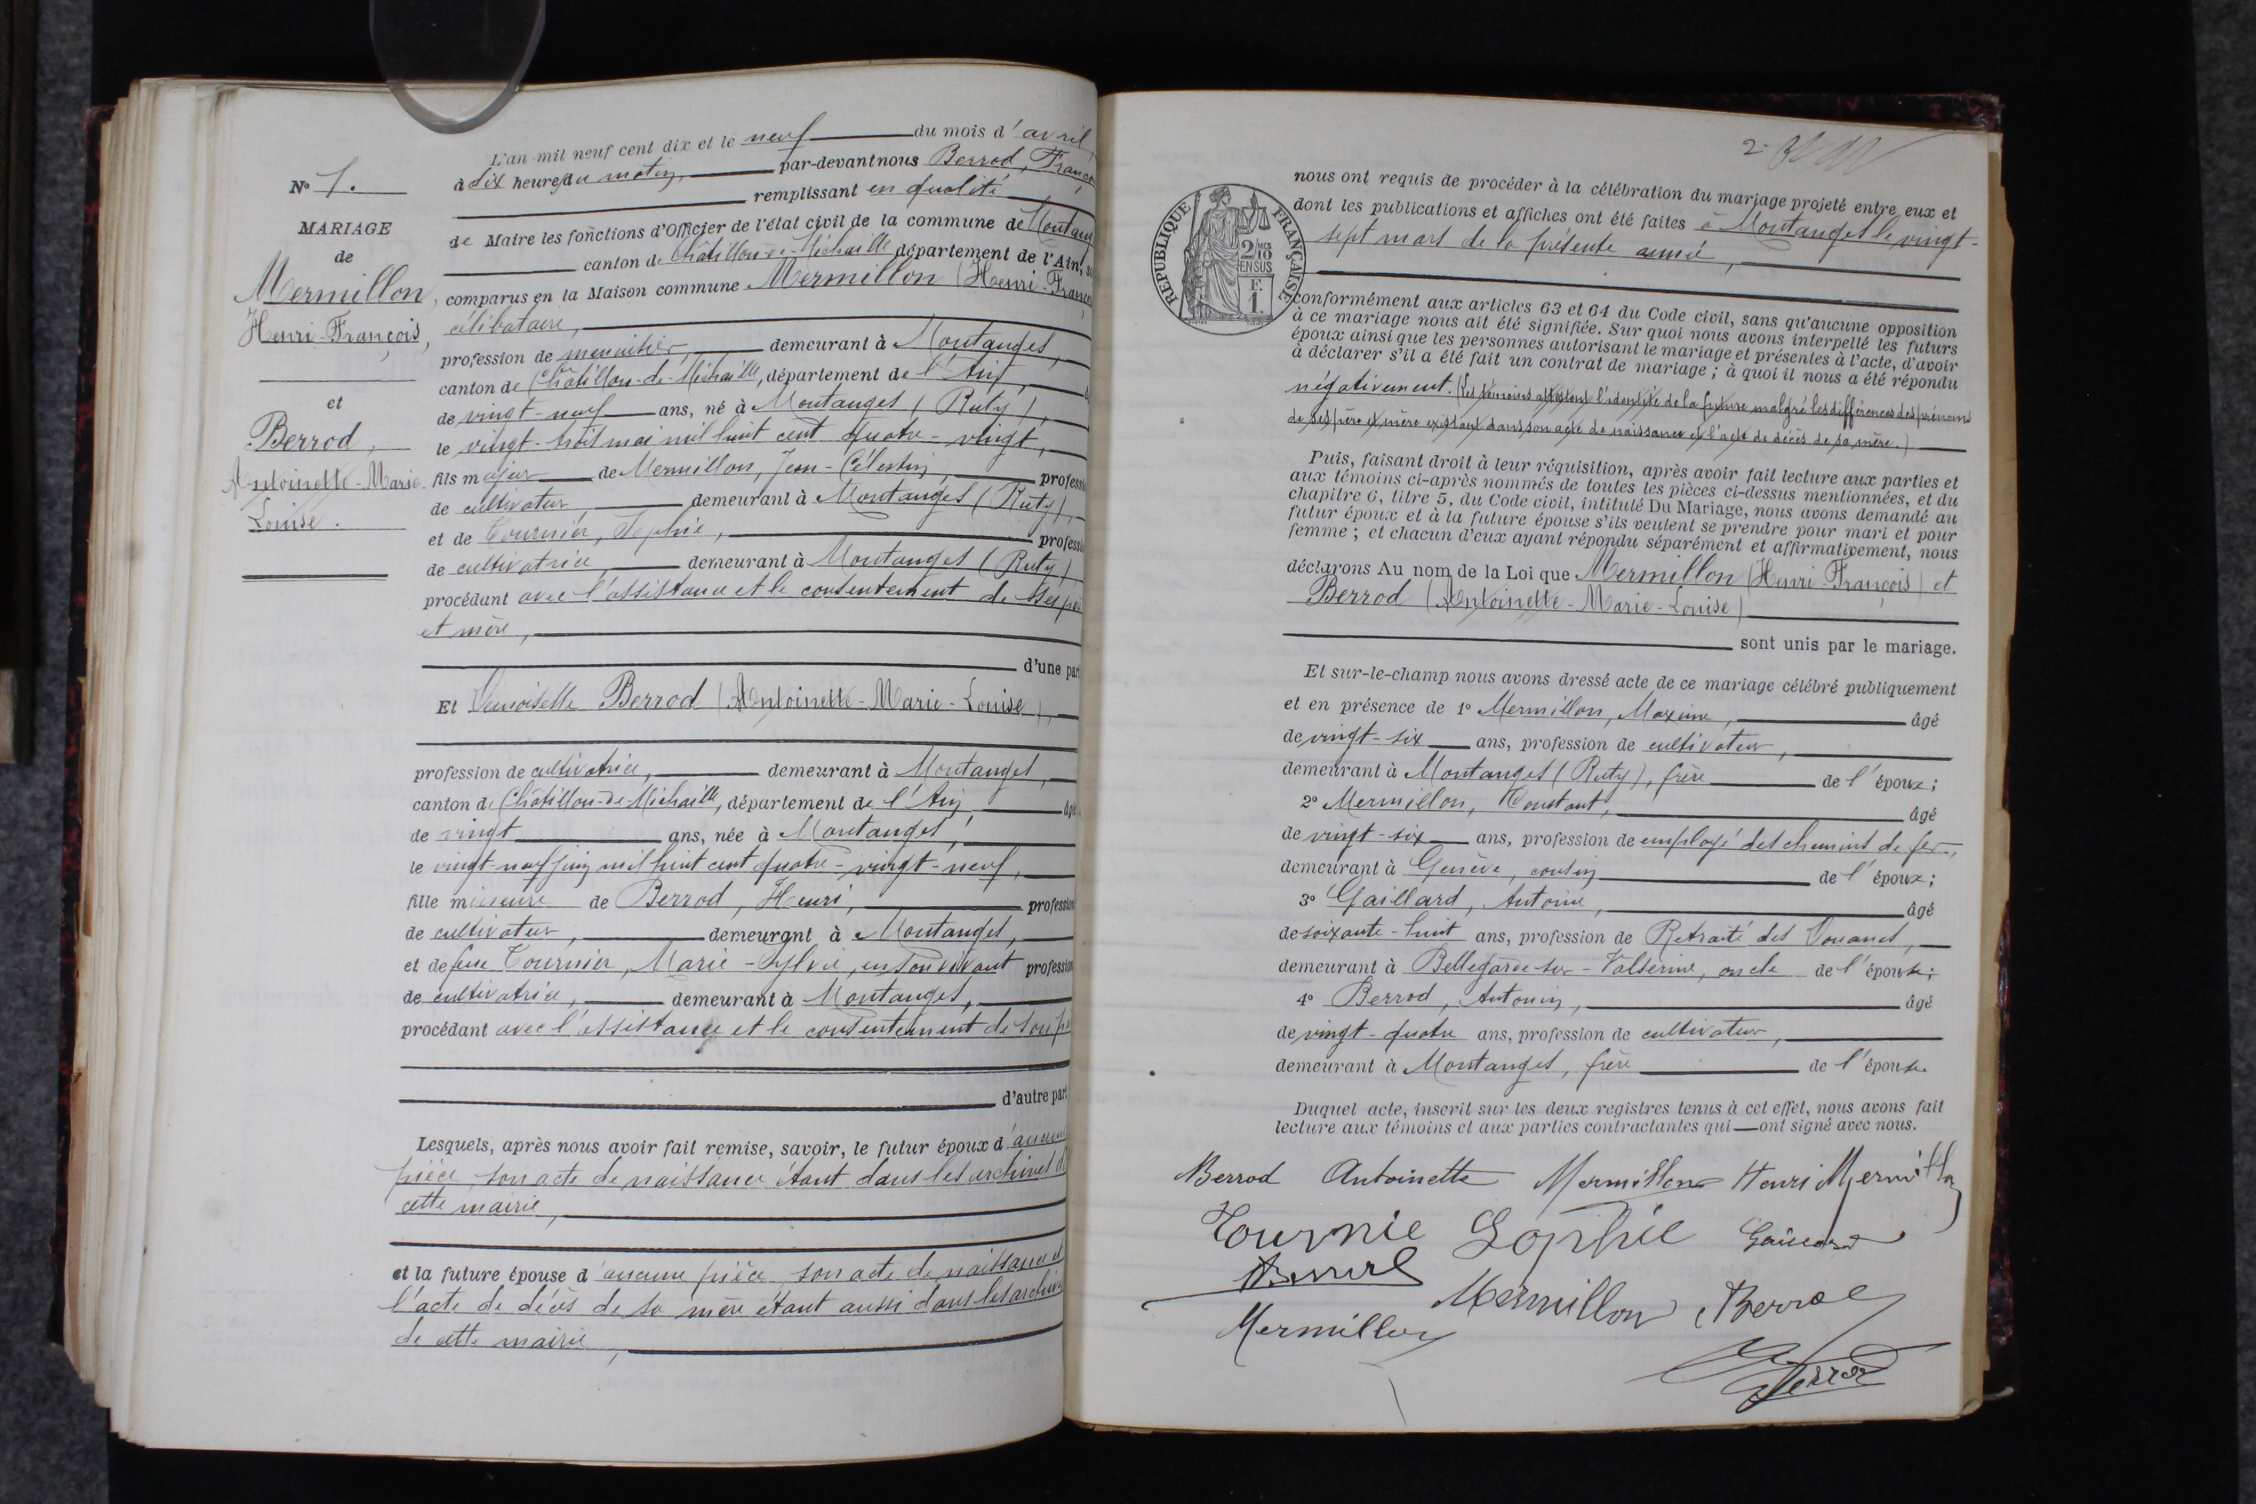 N° 1.
MARIAGE
de
Mermillon,
Henri-François,
et
Berrod,
Antoinette-Marie-
Louise.
L'an mil neuf cent dix et le neuf du mois d'avril,
à dix heures du matin, par-devant nous Berrod, Franço
remplissant en qualité
de Maire les fonctions d'Officier de l'état civil de la commune de Montang
canton de Châtillon-de-Michaille département de l'Ain, s
comparus en la Maison commune Mermillon (Henri-Franço
célibataire,
profession de menuisier, demeurant à Montanges,
canton de Châtillon-de-Michaille, département de l'Ain,
de vingt-neuf ans, né à Montanges (Ruty),
le vingt-trois mai mil huit cent quatre-vingt,
fils majeur de Mermillon, Jean-Célestin, professi
de cultivateur, demeurant à Montanges (Ruty),
et de Tournier, Sophie, professi
de cultivatrice, demeurant à Montanges (Ruty)
procédant avec l'assistance et le consentement de ses pè
et mère,
d'une part
Et Demoiselle Berrod (Antoinette-Marie-Louise),
profession de cultivatrice, demeurant à Montanges,
canton de Châtillon-de-Michaille, département de l'Ain, âgée
de vingt ans, née à Montanges,
le vingt-neuf juin mil huit cent quatre-vingt-neuf,
fille mineure de Berrod, Henri, profession
de cultivateur, demeurant à Montanges,
et de feue Tournier, Marie-Sylvie, en son vivant profession
de cultivatrice, demeurant à Montanges,
procédant avec l'assistance et le consentement de son pè
d'autre part
Lesquels, après nous avoir fait remise, savoir, le futur époux d'aucune
pièce son acte de naissance étant dans les archives de
cette mairie,
et la future épouse d'aucune pièce son acte de naissance et
l'acte de décès de sa mère étant aussi dans les archives
de cette mairie,
2
RÉPUBLIQUE FRANÇAISE
2/10
EN SUS
F.
1.
nous ont requis de procéder à la célébration du mariage projeté entre eux et
dont les publications et affiches ont été faites à Montanges le vingt-
sept mars de la présente année,
conformément aux articles 63 et 64 du Code civil, sans qu'aucune opposition
à ce mariage nous ait été signifiée. Sur quoi nous avons interpellé les futurs
époux ainsi que les personnes autorisant le mariage et présentes à l'acte, d'avoir
à déclarer s'il a été fait un contrat de mariage ; à quoi il nous a été répondu
négativement. (Les témoins attestent l'identité de la future malgré les différences des prénoms
de ses père et mère existant dans son acte de naissance et l'acte de décès de sa mère.)
Puis, faisant droit à leur réquisition, après avoir fait lecture aux parties et
aux témoins ci-après nommés de toutes les pièces ci-dessus mentionnées, et du
chapitre 6, titre 5, du Code civil, intitulé Du Mariage, nous avons demandé au
futur époux et à la future épouse s'ils veulent se prendre pour mari et pour
femme ; et chacun d'eux ayant répondu séparément et affirmativement, nous
déclarons Au nom de la Loi que Mermillon (Henri-François) et
Berrod (Antoinette-Marie-Louise)
sont unis par le mariage.
Et sur-le-champ nous avons dressé acte de ce mariage célébré publiquement
et en présence de 1° Mermillon, Maxime, âgé
de vingt-six ans, profession de cultivateur,
demeurant à Montanges (Ruty), frère de l'époux ;
2° Mermillon, Constant, âgé
de vingt-six ans, profession de employé des chemins de fer,
demeurant à Genève, cousin de l'époux ;
3° Gaillard, Antoine, âgé
de soixante-huit ans, profession de Retraité des Douanes,
demeurant à Bellegarde-sur-Valserine, oncle de l'épouse ;
4° Berrod, Antonin, âgé
de vingt-quatre ans, profession de cultivateur,
demeurant à Montanges, frère de l'épouse.
Duquel acte, inscrit sur les deux registres tenus à cet effet, nous avons fait
lecture aux témoins et aux parties contractantes qui ont signé avec nous.
Berrod Antoinette Mermillon Henri Mermillon
Tournie Sophie Gaillard
Mermillon Berrod
Mermillon
Berrod